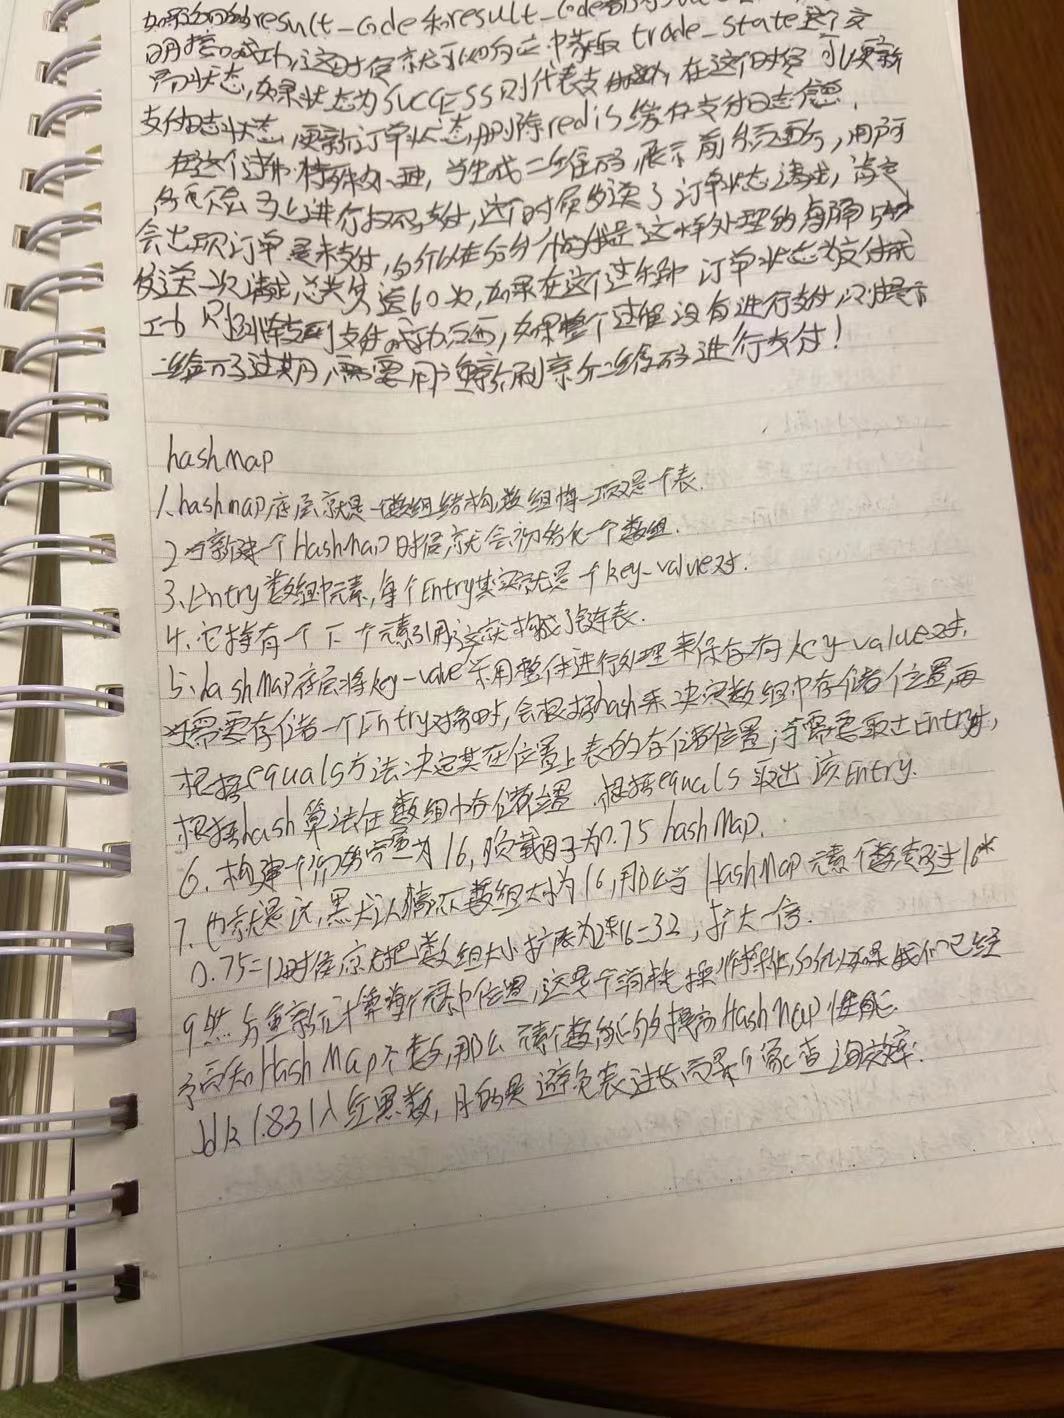 如果返回的result_code和result_code都为
明接口成功,这时候就可以从中获取trade_state这个交
易状态,如果状态为SUCCESS则代表支付成功,在这个时候可以更新
支付日志状态,更新订单状态,删除redis缓存支付日志信息,
在这个过程特殊处理,当生成二维码,展示前台页面后,用户
会出现订单是未支付,所以在后台 我是这样处理的每隔5秒
发送一次请求,总共发送60次,如果在这个过程种订单状态为支付成
功则跳转到支付成功页面,如果整个过程没有进行支付,则提示
二维码过期,需要用户重新刷新二维码进行支付!
hashmap
1、hashmap底层就是一数组结构,数组中一项又是个表.
2当新建一个HashMap时候就会初始化一个数组.
3、Entry数组中元素,每个Entry其实就是个key-value对.
4、它持有一个下个元素引用,这就构成了链表.
5、hashMap底层将key-value采用整体进行处理来保存有key-value对,
当需要存储一个Entry对象时,会根据hash来决定数组中存储位置,再
根据equals方法决定其在位置上表的存储位置;当需要取出Entry时,
根据hash算法在数组中存储位置,根据equals取出该Entry.
6、构建一个初始容量为16,负载因子为0.75 hashMap.
7、也就是说,默认情况下数组大小为16,那么当HashMap元素个数超过16*
0.75=12时候就把数组大小扩展为2*16=32,扩大一倍.
9然后重新计算每个元素中位置,这是个消耗操作,所以如果我们已经
予知HashMap个数,那么元素个数能的提高HashMap性能
Jdk1.8引入红黑数,目的是避免表过长而影响查询效率.